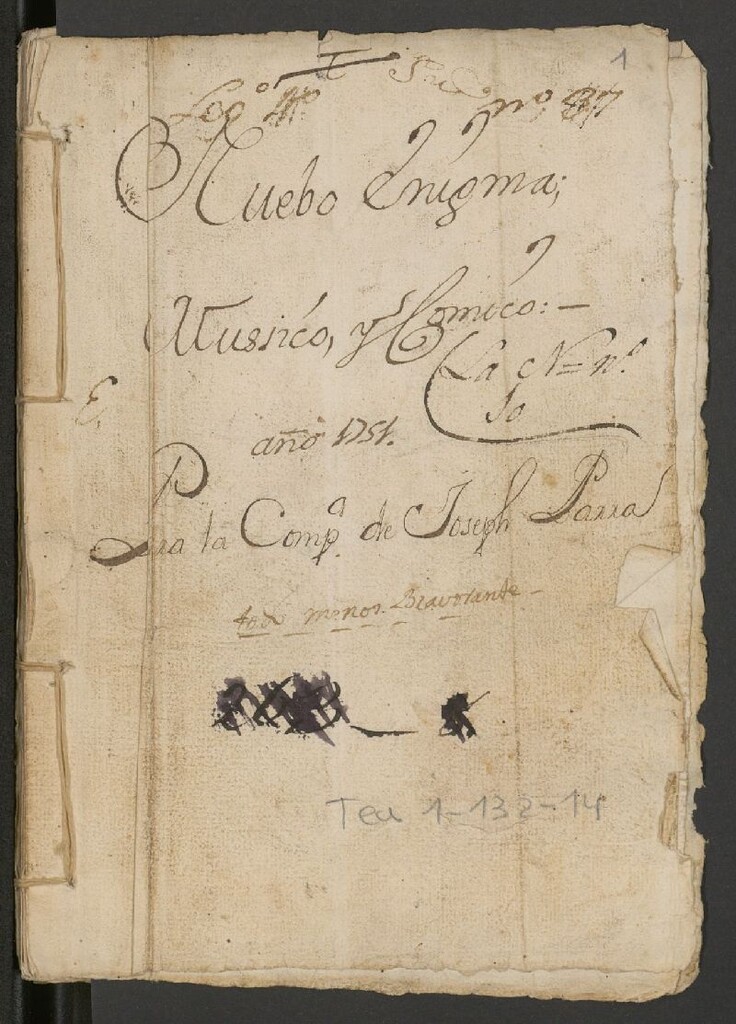 1
Leg.º 4º nº 87
Nuebo Enigma;
Mussico, y Comico: —
La N= nº.
10
E.
año 1751.
Para la Comp.ª de Joseph Parra
todo menos Bravorante —
Tea 1-132-14